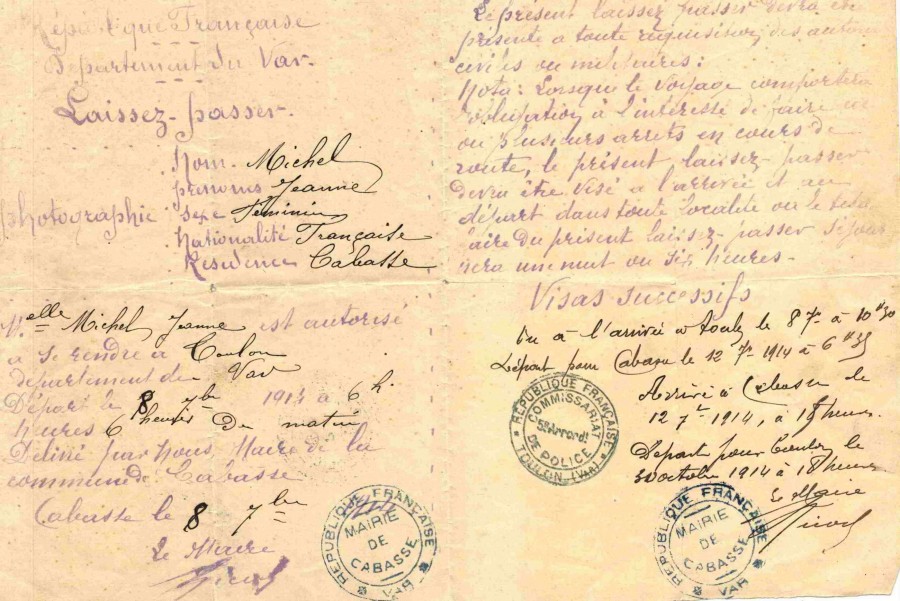 République Française
Département du Var
Laissez-passer
Nom. Michel
prénoms Jeanne
photographie sexe Féminin
Nationalité Française
Résidence Cabasse
Melle Michel Jeanne est autorisé
à se rendre à Toulon
département du Var
Départ le 8 7bre 1914 à 6 h.
heures 6 heures du matin
Délivré par Nous, Maire de la
commune de Cabasse
Cabasse le 8 7bre
Le Maire
REPUBLIQUE FRANÇAISE
MAIRIE
DE
CABASSE
VAR
Le présent laissez passer devra être
présenté à toute réquisition des autorités
civiles ou militaires:
Nota: Lorsque le voyage comportera
obligation à l'intéressé de faire un
ou plusieurs arrêts en cours de
route, le présent laissez-passer
devra être visé à l'arrivée et au
départ dans toute localité où le
du présent laissez-passer
sera une nuit ou six heures.
Visas successifs
Vu à l'arrivée à le 8 7re à 10 h 30
Départ pour Cabasse le 12 7re 1914 à 6 h 35
Arrivé à Cabasse le
12 7re 1914, à 18 heures.
Départ pour Toulon le
30 octobre 1914 à 18 heures
Le Maire
REPUBLIQUE FRANÇAISE
COMMISSARIAT
5e Arrondt
DE POLICE
TOULON (VAR)
REPUBLIQUE FRANÇAISE
MAIRIE
DE
CABASSE
VAR